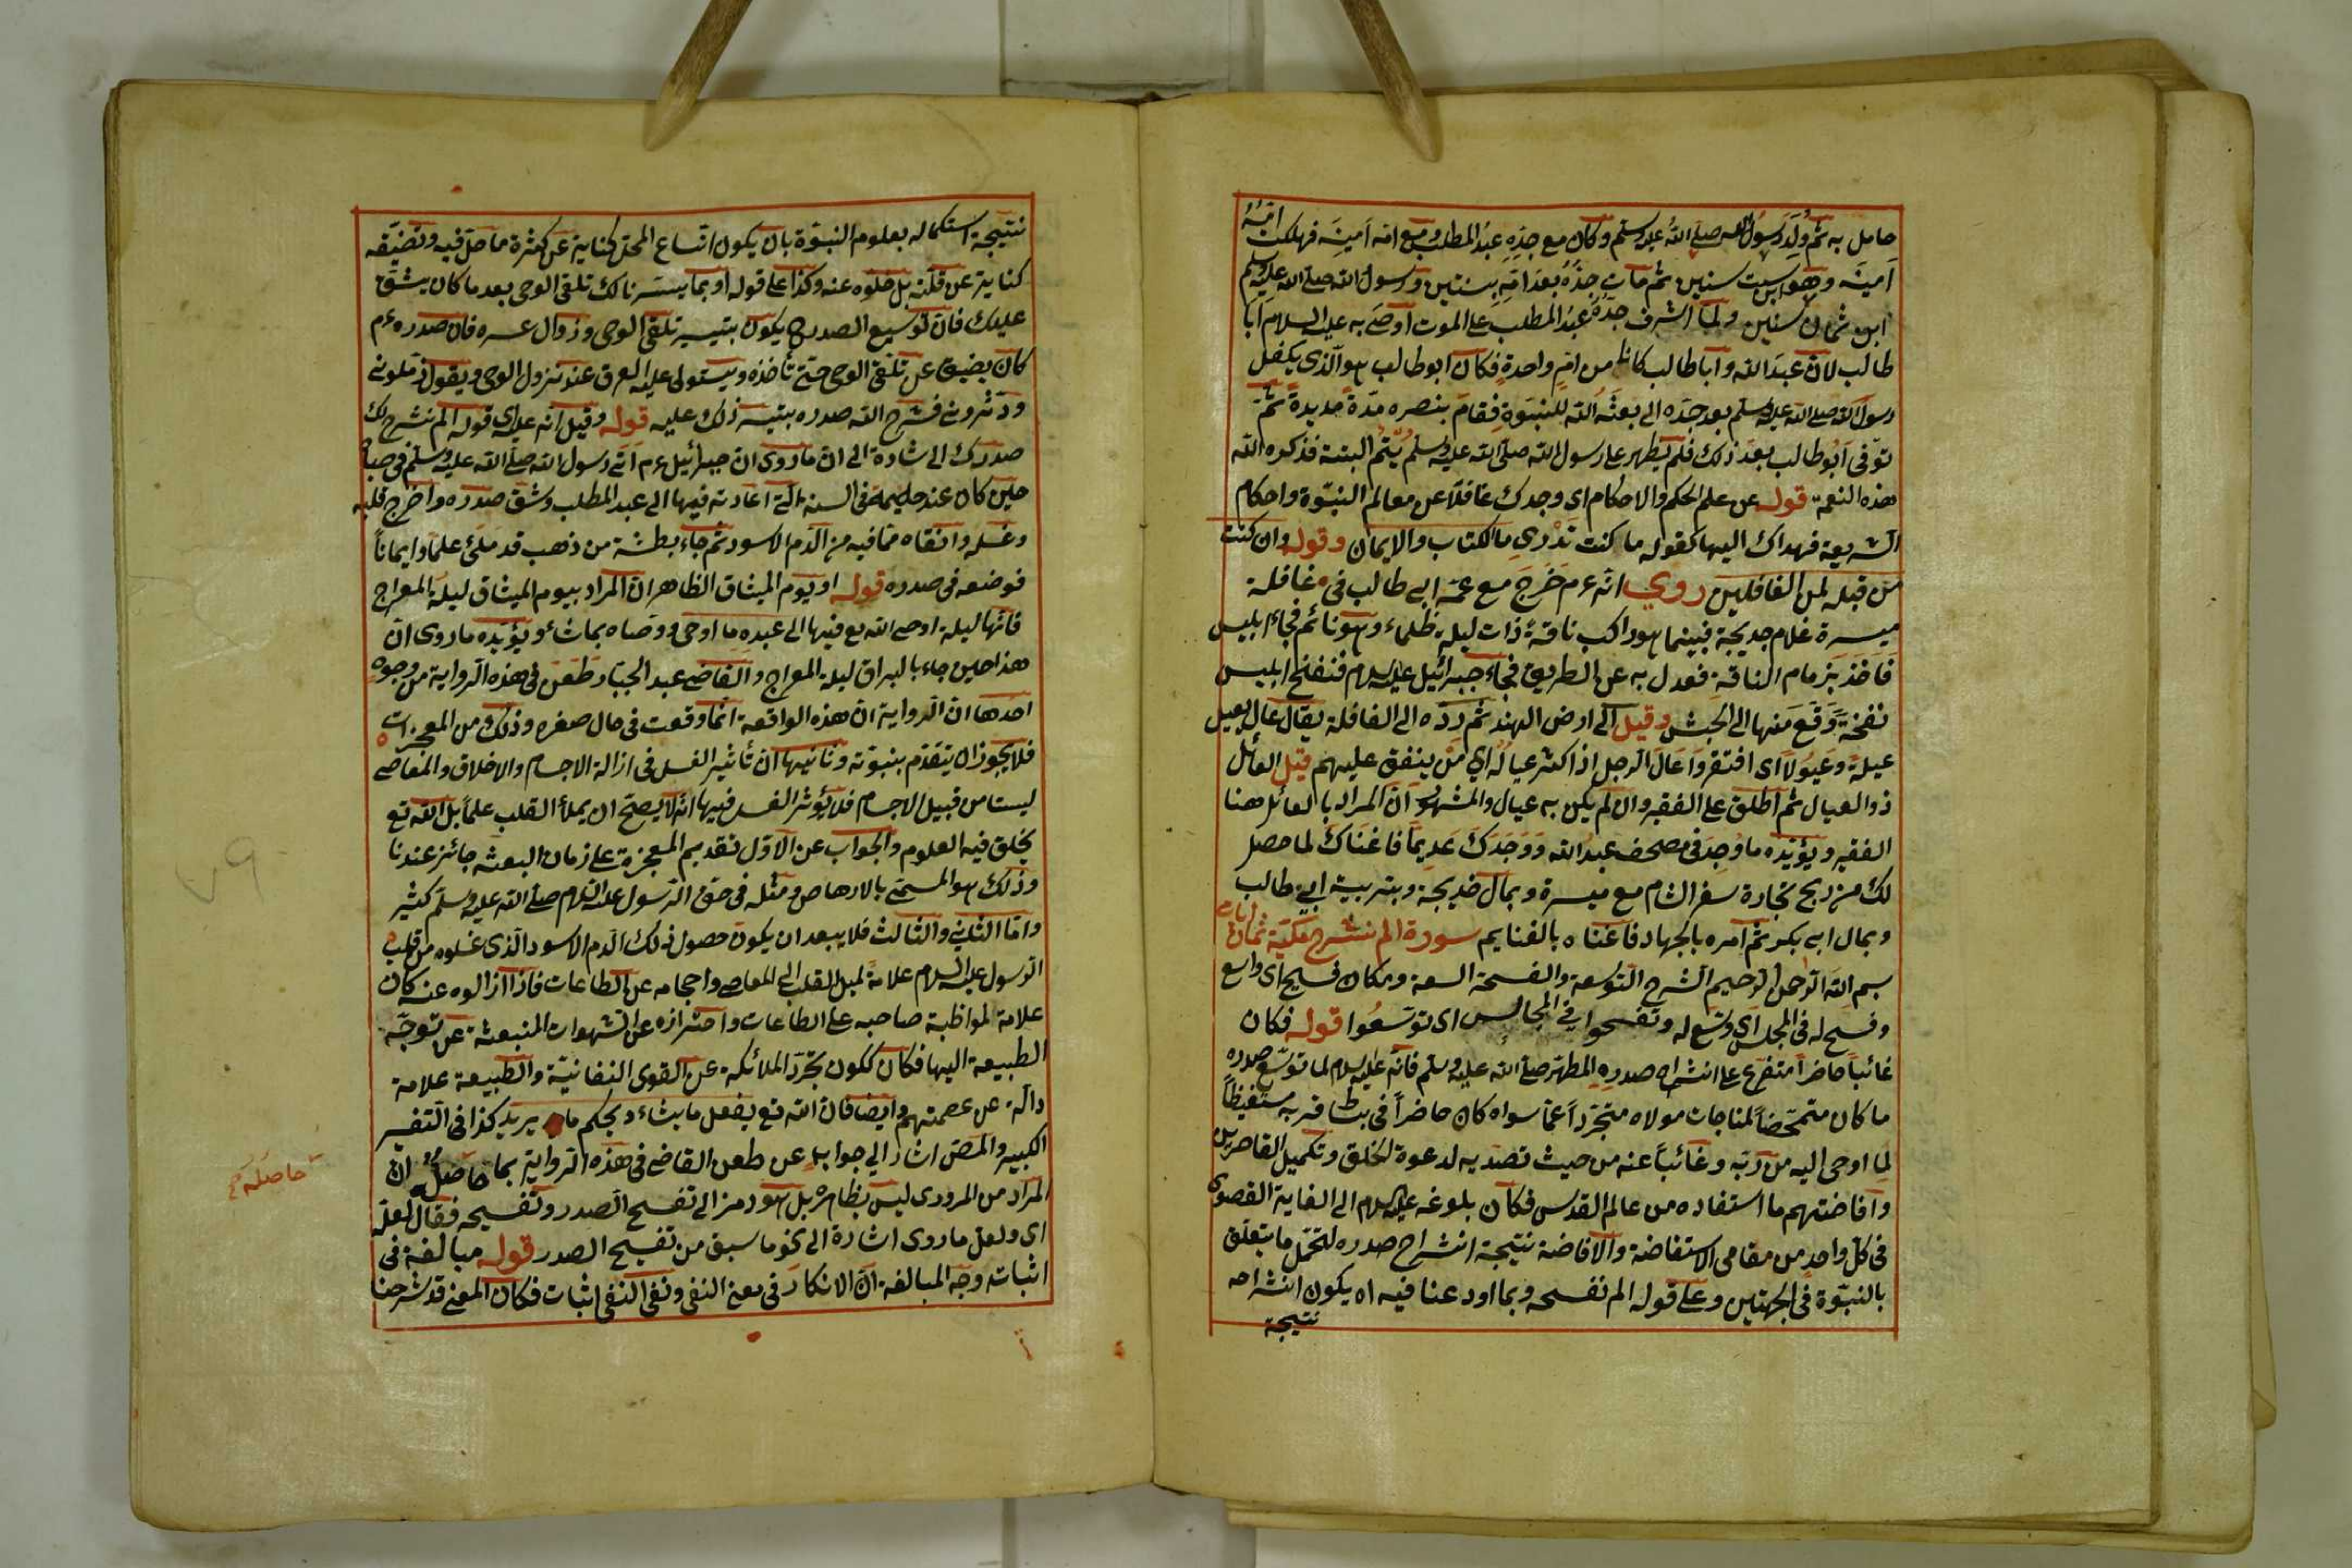 حامل به ثم ولد رسول الله صلى الله عليه وسلم وكان مع جده عبد المطلب ومع امه آمنة فهلكت امه
آمنة وهو ابن ست سنين ثم مات جده بعد امه بسنتين ورسول الله صلى الله عليه وسلم
ابن ثمان سنين ولما اشرف جده عبد المطلب على الموت اوصى به عليه السلام ابا
طالب لان عبد الله وابا طالب كانا من ام واحدة فكان ابو طالب هو الذى يكفل
رسول الله صلى الله عليه وسلم بعد جده الى بعثه الله للنبوة فقام بنصره مدة مديدة ثم
توفى ابو طالب بعد ذلك فلم يظهر على رسول الله صلى الله عليه وسلم يتم البتة فذكره الله
هذه النعمة قوله عن علم الحكم والاحكام اى وجدك غافلا عن معالم النبوة واحكام
الشريعة فهداك اليها كقوله ما كنت تدرى ما الكتاب والايمان وقوله وان كنت
من قبله لمن الغافلين روي انه ءم خرج مع عمه ابى طالب فى قافلة
ميسرة غلام خديجة فبينما هو راكب ناقة ذات ليلة ظلماء وهو نائم فجاء ابليس
فاخذ بزمام الناقة فعدل به عن الطريق فجاء جبرائيل عليه السلام فنفخ ابليس
نفخة وقع منها الى الحبش وقيل الى ارض الهند ثم رده الى القافلة يقال عال يعيل
عيلة وعيولا اى افتقر واعال الرجل اذا كثر عياله اي من ينفق عليهم قيل العائل
ذو العيال ثم اطلق على الفقير وان لم يكن به عيال والمشهور ان المراد بالعائل ههنا
الفقير ويؤيده ما وجد فى مصحف عبد الله ووجدك عديما فاغناك لما حصل
لك من ربح تجارة سفر الشام مع ميسرة وبمال خديجة وبتربية ابى طالب
وبمال ابى بكر ثم امره بالجهاد فاغناه بالغنايم سورة الم نشرح مكية ثمان ايات
بسم الله الرحمن الرحيم الشرح التوسعة والفسحة السعة ومكان فسيح اى واسع
وفسح له فى المجلس اى وسع له وتفسحوا فى المجالس اى توسعوا قوله فكان
غائبا حاضرا متفرع على انشراح صدره المطهر صلى الله عليه وسلم فانه عليه السلام لما توسع صدره
ما كان متمحضا لمناجات مولاه متجردا عما سواه كان حاضرا فى بساط قربه مستفيضا
لما اوحى اليه من ربه وغائبا عنه من حيث تصديه لدعوة الخلق وتكميل القاصرين
وافاضتهم ما استفاده من عالم القدس فكان بلوغه عليه السلام الى الغاية القصوى
فى كل واحد من مقامى الاستفاضة والافاضة نتيجة انشراح صدره لتحمل ما يتعلق
بالنبوة فى الجهتين وعلى قوله الم نفسحه وبما اودعنا فيه اه يكون انشراحه
نتيجة
نتيجة استكماله بعلوم النبوة بان يكون اتساع المحل كناية عن كثرة ما حل فيه وتضيقه
كناية عن قلته بل خلوه عنه وكذا على قوله او بما يسرنا لك تلقى الوحى بعد ما كان يشق
عليك فان توسيع الصدر ح يكون بتيسير تلقى الوحى وزوال عسره فان صدره ءم
كان يضيق عن تلقى الوحى حتى تأخذه ويستولى عليه العرق عند نزول الوحى ويقول زملونى
ودثرونى فشرح الله صدره بتيسر ذلك عليه قوله وقيل انه على اى قوله الم نشرح لك
صدرك اشارة الى ان ما روى ان جبرائيل ءم اتى رسول الله صلى الله عليه وسلم فى صباه
حين كان عند حليمة فى السنة التى اعادته فيها الى عبد المطلب وشق صدره واخرج قلبه
وغسله وانقاه مما فيه من الدم الاسود ثم جاء بطشة من ذهب قد ملئ علما وايمانا
فوضعه فى صدره قوله او يوم الميثاق الظاهر ان المراد بيوم الميثاق ليلة المعراج
فانها ليلة اوحى الله تع فيها الى عبده ما اوحى ووصاه بما شاء ويؤيده ما روى ان
هذا حين جاء بالبراق ليلة المعراج والقاضى عبد الجبار طعن فى هذه الرواية من وجوه
احدها ان الرواية ان هذه الواقعة انما وقعت فى حال صغره وذلك من المعجزات
فلا يجوز ان يتقدم بنبوته وثانيها ان تأثير الغسل فى ازالة الاجسام والاخلاق والمعاصى
ليست من قبيل الاجسام فلا يؤثر الغسل فيها انه لا يصح ان يملأ القلب علما بل الله تع
يخلق فيه العلوم والجواب عن الاول تقديم المعجزة على زمان البعثة جائز عندنا
وذلك هو المسمى بالارهاص ومثله فى حق الرسول عليه السلام صلى الله عليه وسلم كثير
واما الثانى والثالث فلا يبعد ان يكون حصول ذلك الدم الاسود الذى غسلوه من قلب
الرسول عليه السلام علامة لميل القلب الى المعاصى واحجامه عن الطاعات فاذا ازالوه عنه كان
علامة لمواظبة صاحبه على الطاعات واحترازه عن الشهوات المنبعثة عن توجه
الطبيعة اليها فكان ككون تجرد الملائكة عن القوى النفسانية والطبيعة علامة
دالة عن عصمتهم وايضا فان الله تع يفعل ما يشاء ويحكم ما يريد كذا فى التفسير
الكبير والمص اشار الى جوابه عن طعن القاضى فى هذه الرواية بما حاصله ان
المراد من المروى ليس بظاهره بل هو رمز الى تفسح الصدر وتفسيحه فقال لعله
اى ولعل ما روى اشارة الى نحو ما سبق من تفسيح الصدر قوله مبالغة فى
اثباته وجه المبالغة ان الانكار فى معنى النفى ونفى النفى اثبات فكان المعنى قد شرحنا
حاصله صح